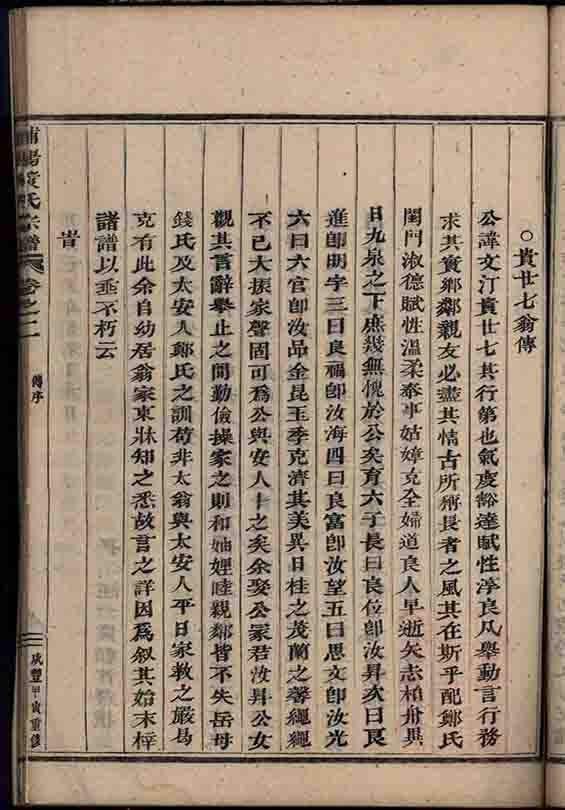 ○貴廿七翁傳
公諱文汀貴廿七其行第也氣度豁達賦性淳良凡舉動言行務
求其實鄉鄰親友必盡其情古所稱長者之風其在斯乎配鄭氏
閨門淑德賦性溫柔奉事姑嫜克全婦道良人早逝矢志柏舟異
日九泉之下庶幾無愧於公矣育六子長曰良位卽汝昇次曰良
進卽明字三曰良福卽汝海四曰良富卽汝望五曰思文卽汝光
六曰六官卽汝昂金昆玉季克濟其美異日桂之茂蘭之馨繩繩
不已大振家聲固可為公與安人卜之矣余娶公冢君汝昇公女
觀其言辭舉止之間勤儉操家之則和妯娌睦親鄰皆不失岳母
錢氏及太安人鄭氏之訓苟非太翁與太安人平日家教之嚴曷
克有此余自幼居翁家東牀知之悉故言之詳因為叙其始末梓
諸譜以垂不朽云
氏宗譜
卷之二
傳序
咸豐甲寅重修